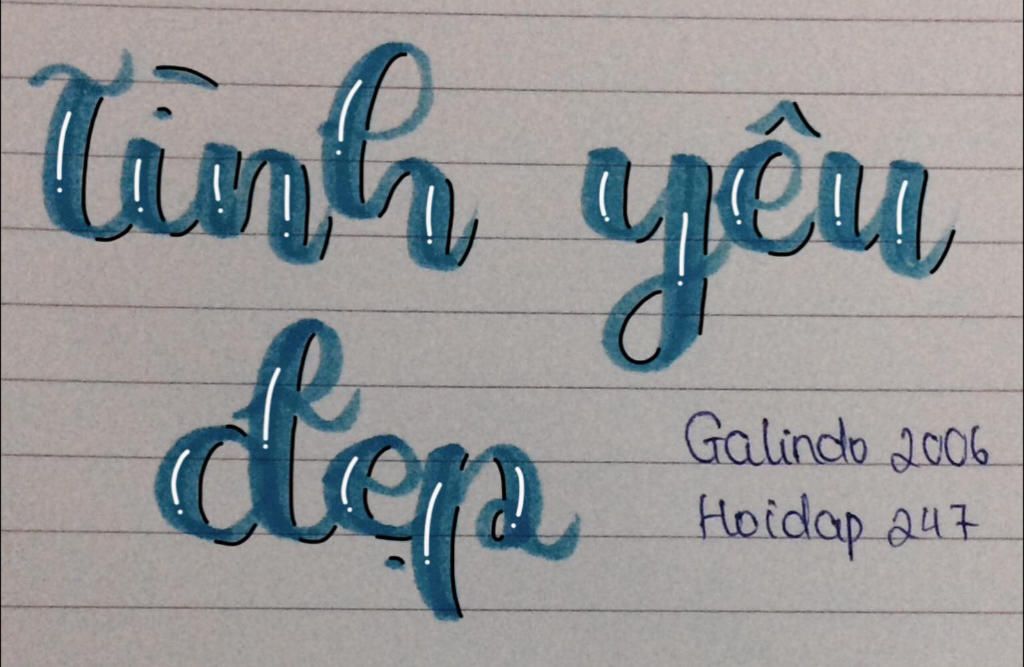 Tình yêu
đẹp
Galindo 2006
Hoidap 247